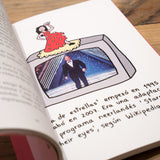 de estrellas' empezó en 1995
abó en 2001. Era una adaptac
programa neerlandés 'Star
heir eyes', según Wikipedi